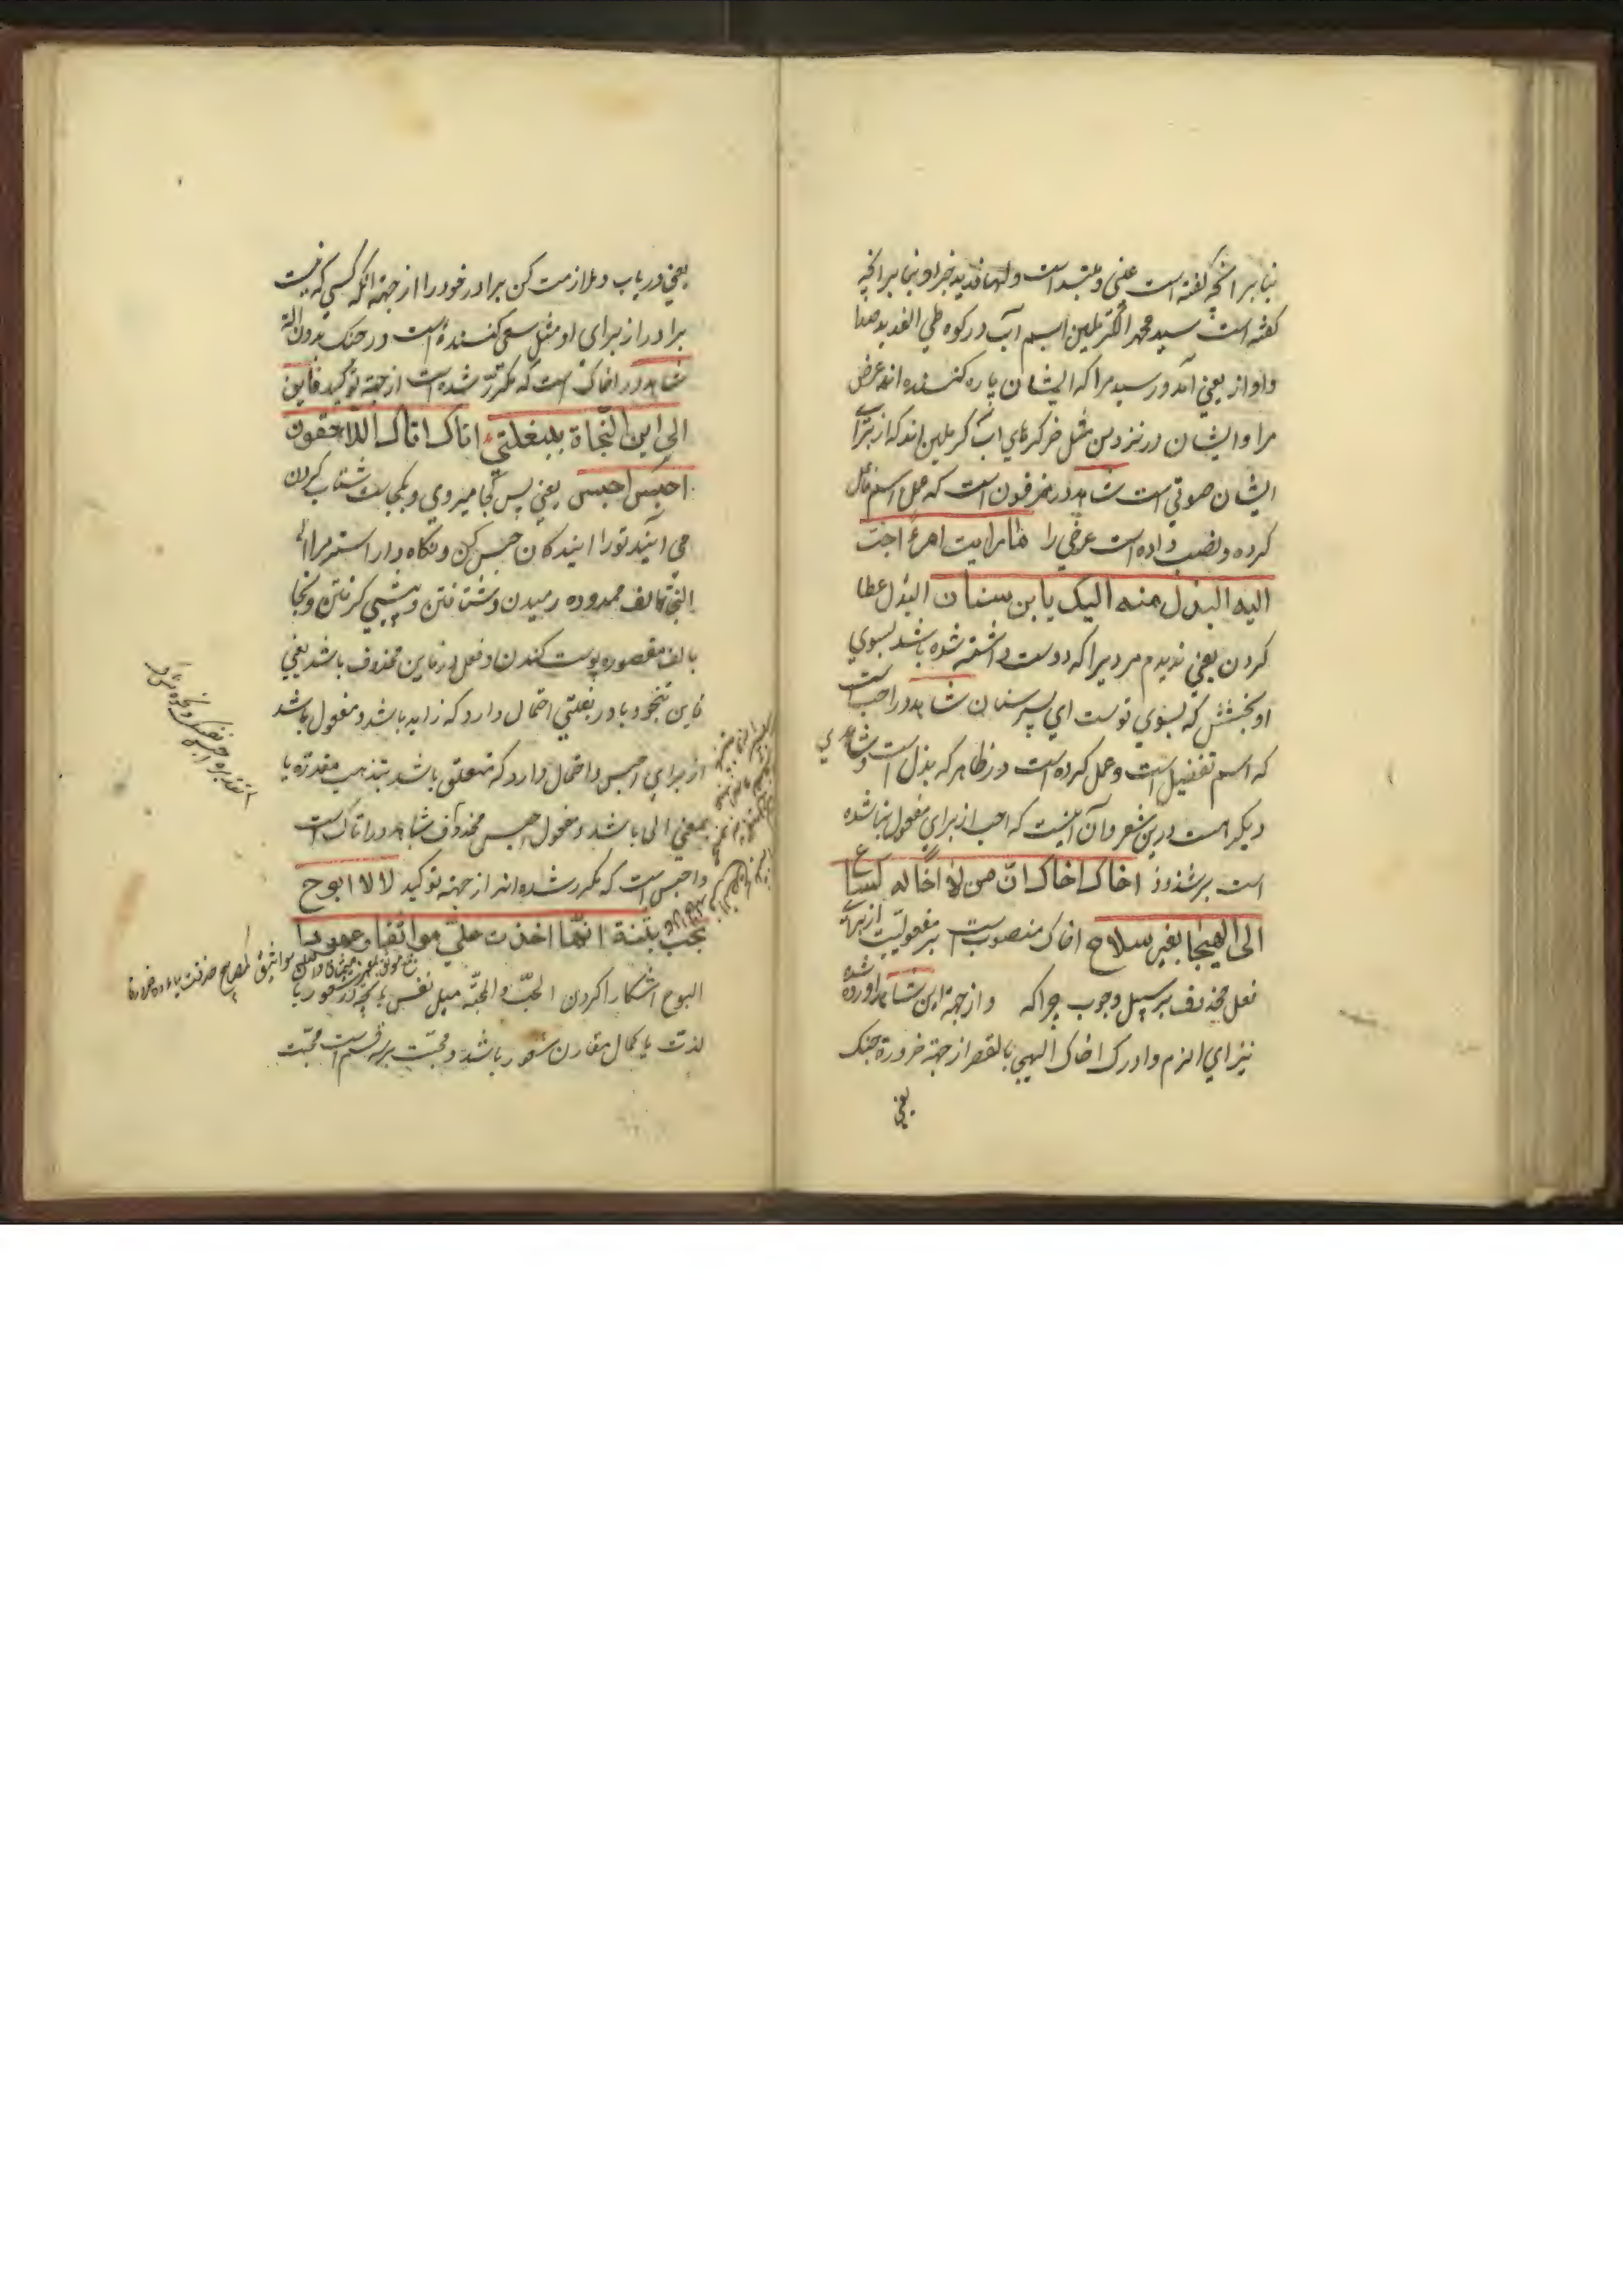 بنابر آنچه گفته است عینی و مبتدا است ولها فدید خبر او بنابر آنچه
گفته است سید محمد الکرملین اسم آب در کوه طی الفدید صدا
و اواز یعنی آمد و رسید مرا که ایشان پاره کننده اند عرض
مرا و ایشان در نزد من مثل خر کرهای آب کرملین اند که از برای
ایشان صوتی است شاهد در مزقون است که عمل اسم فاعل
کرده و نصب داده است عرضی را ما رایت امرءً احب
الیه البذل منه الیک یا ابن سنان البذل عطا
کردن یعنی ندیدم مردیرا که دوست داشته شده باشد بسوی
او بخشش که بسوی توست ای پسر سنان شاهد در احب است
که اسم تفضیل است و عمل کرده است در ظاهر که بذل است و شاهدی
دیگر هست درین شعر و آن اینست که احب از برای مفعول بنا شده
است بر شذوذ اخاک اخاک انّ من لا اخا له کساع
الی الهیجا بغیر سلاح اخاک منصوب است بر مفعولیت از برای
فعل محذوف بر سبیل وجوب چرا که و از جهة این شاهد آورده شده
نیز ای الزم و ادرک اخاک الهیجی بالقصر از جهة ضرورة جنک
یعنی
یعنی دریاب و ملازمت کن برادر خود را از جهة آنکه کسی که نیست
برادر از برای او مثل سعی کننده است در جنک بدون آلة
شاهد در اخاک است که مکرر شده است از جهة توکید فاین
الی این النجاة ببغلتی اتاک اتاک اللاحقون
احبس احبس یعنی پس کجا میروی و بکجاست شتاب کردن
می آیند تو را آیندکان حبس کن و نکاه دار استر مرا
النجا بالف ممدوده رمیدن و شتافتن و پیشی کرفتن و نجا
بالف مقصوره پوست کندن و فعل در فاین محذوف باشد یعنی
فاین تنجو و با در بغلتی احتمال دارد که زاید باشد و مفعول باشد
از برای احبس و احتمال دارد که متعلق باشد بتذهب مقدره با
بمعنی الی باشد و مفعول احبس محذوف شاهد در اتاک است
و احبس است که مکرر شده اند از جهة توکید لا لا ابوح
بحب بثنة انّها اخذت علیّ مواثقا و عهودا
البوح آشکارا کردن الحبّ و المحبّه میل نفس بانچه در شعور با
لذت یا کمال مقارن شعور باشد و محبت بر سه قسم است محبت